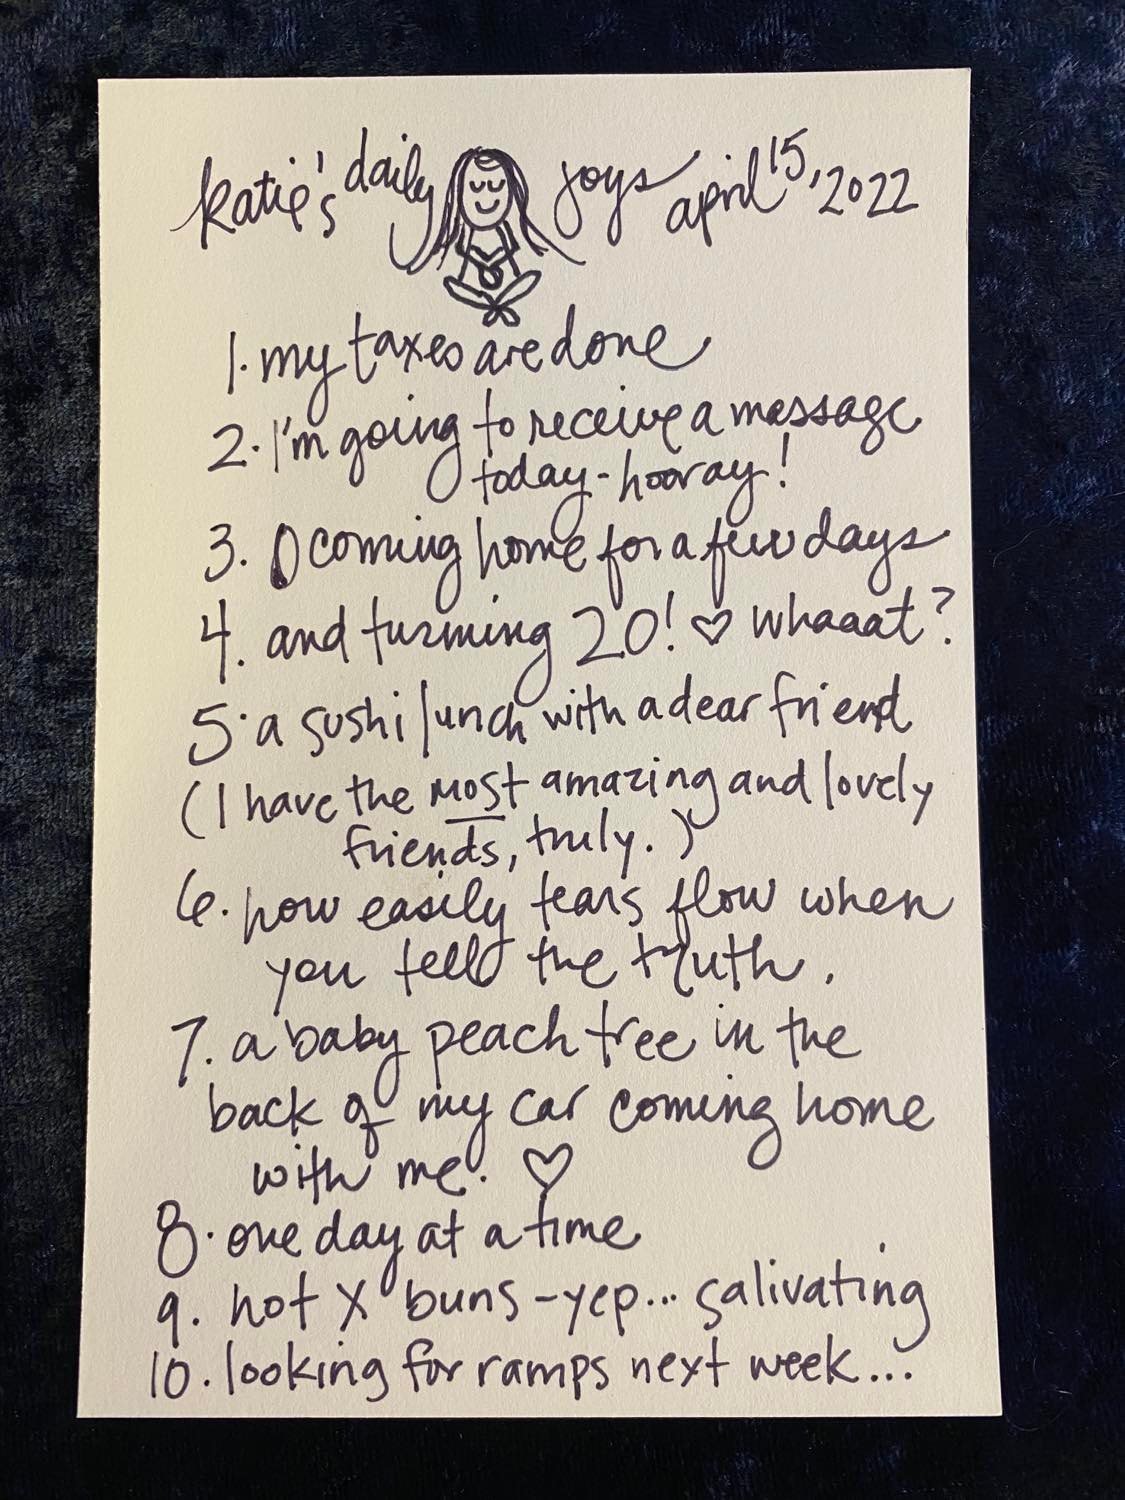 katie's daily joys april 15, 2022
1. my taxes are done
2. I'm going to receive a message
today - hooray!
3. O coming home for a few days
4. and turning 20! ♡ whaaat?
5. a sushi lunch with a dear friend
(I have the most amazing and lovely
friends, truly.)
6. how easily tears flow when
you tell the truth.
7. a baby peach tree in the
back of my car coming home
with me. ♡
8. one day at a time
9. hot X buns - yep... salivating
10. looking for ramps next week...